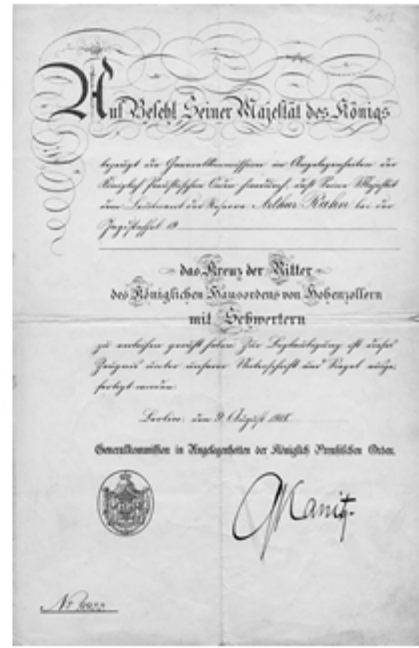 Auf Befehl Seiner Majestät des Königs
bezeugt die Generalkommission in Angelegenheiten der
Königlich Preußischen Orden hierdurch, daß Seine Majestät
dem Leutnant der Reserve Arthur Rahn bei der
Jagdstaffel 19
das Kreuz der Ritter
des Königlichen Hausordens von Hohenzollern
mit Schwertern
zu verleihen geruht haben. Zur Beglaubigung ist dieses
Zeugnis unter unserer Unterschrift und Siegel ausge-
fertigt worden.
Berlin, den 9. August 1918.
Generalkommission in Angelegenheiten der Königlich Preußischen Orden.
No